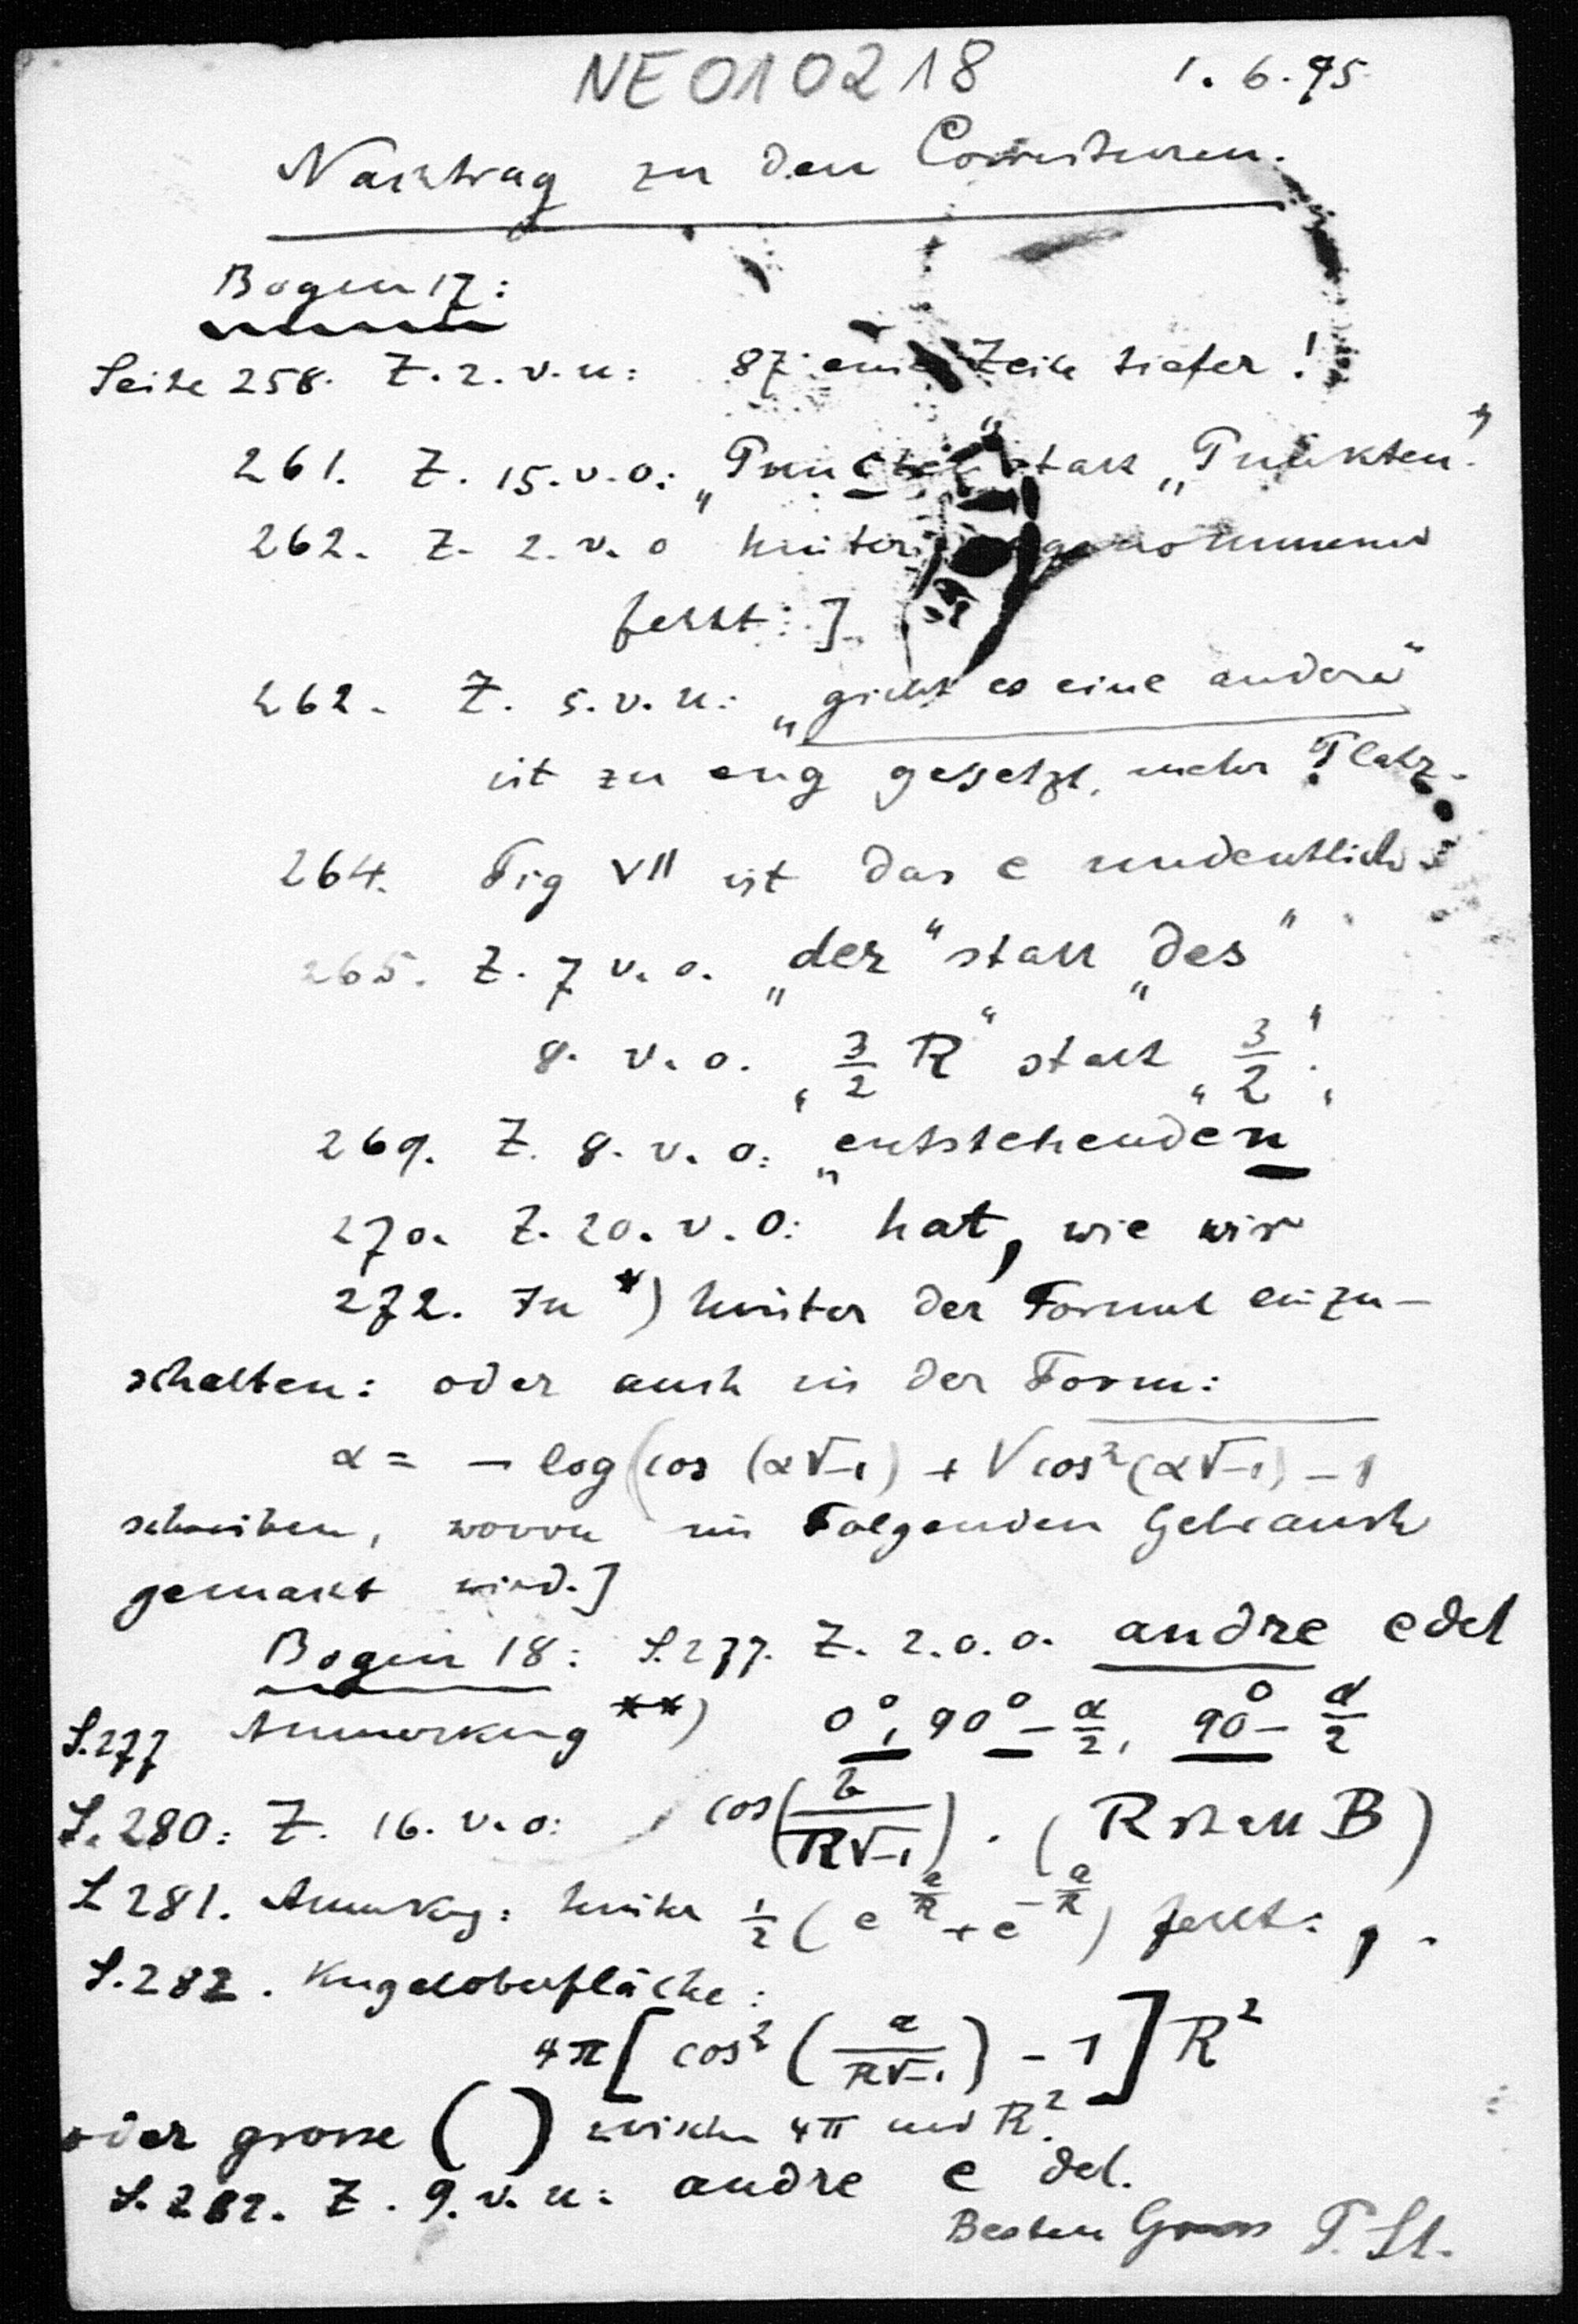 NE010218 1. 6. 95
Nachtrag zu den Correcturen.
Bogen 17:
Seite 258. Z. 2. v. u: 87 eine Zeile tiefer!
261. Z. 15. v. o: „Puncten“ statt „Punkten“.
262. Z. 2. v. o hinter genommen
fehlt: ]
262. Z. 5. v. u: „giebt es eine andere“
ist zu eng gesetzt, mehr Platz.
264. Fig VII ist das e undeutlich
265. Z. 7 v. o. „der“ statt „des“
8. v. o. „3/2 R“ statt „3/2“.
269. Z. 8. v. o: „entstehenden
270. Z. 20. v. o: hat, wie wir
272. In *) hinter der Formel einzu-
schalten: oder auch in der Form:
α = - log (cos (α√-1) + √cos²(α√-1) - 1
schreiben, wovon im Folgenden Gebrauch
gemacht wird.]
Bogen 18: S. 277. Z. 2. v. o. andre e del
S. 277 Anmerkung **) 0°, 90° - α/2, 90° - α/2
S. 280: Z. 16. v. o: cos(b/R√-1). (R statt B)
S 281. Anmkg: hinter 1/2 (e^{a/R} + e^{-a/R}) fehlt: , .
S. 282. Kugeloberfläche:
4π[cos² (a/R√-1) - 1] R²
oder grosse ( ) zwischen 4π und R².
S. 282. Z. 9. v. u: andre e del.
Besten Gruss P. St.